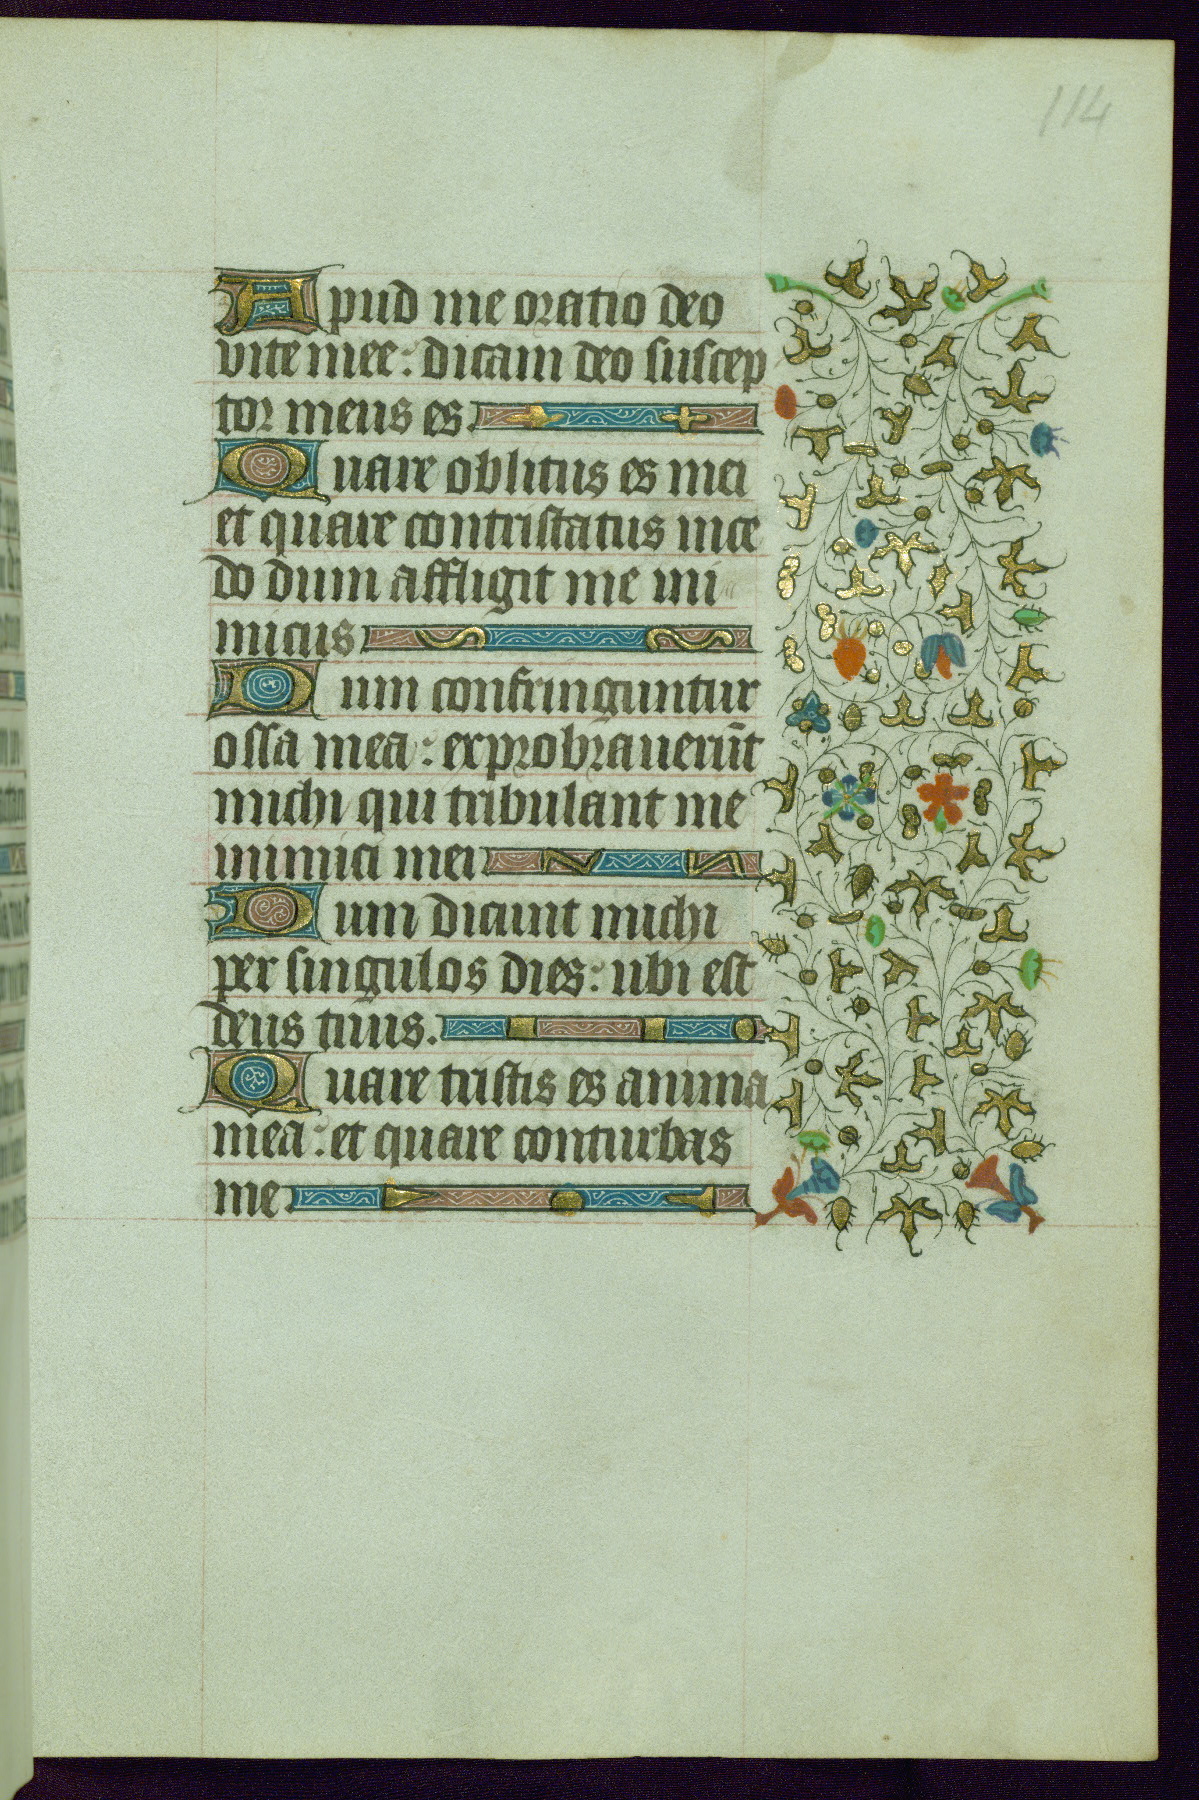 114
Apud me oratio deo
vite mee: dicam deo suscep
tor meus es
Quare oblitus es mei
et quare contristatus ince
do dum affligit me ini
micus
Dum confringuntur
ossa mea: exprobraverūt
michi qui tribulant me
inimici mei
Dum dicunt michi
per singulos dies: ubi est
deus tuus.
Quare tristis es anima
mea: et quare conturbas
me